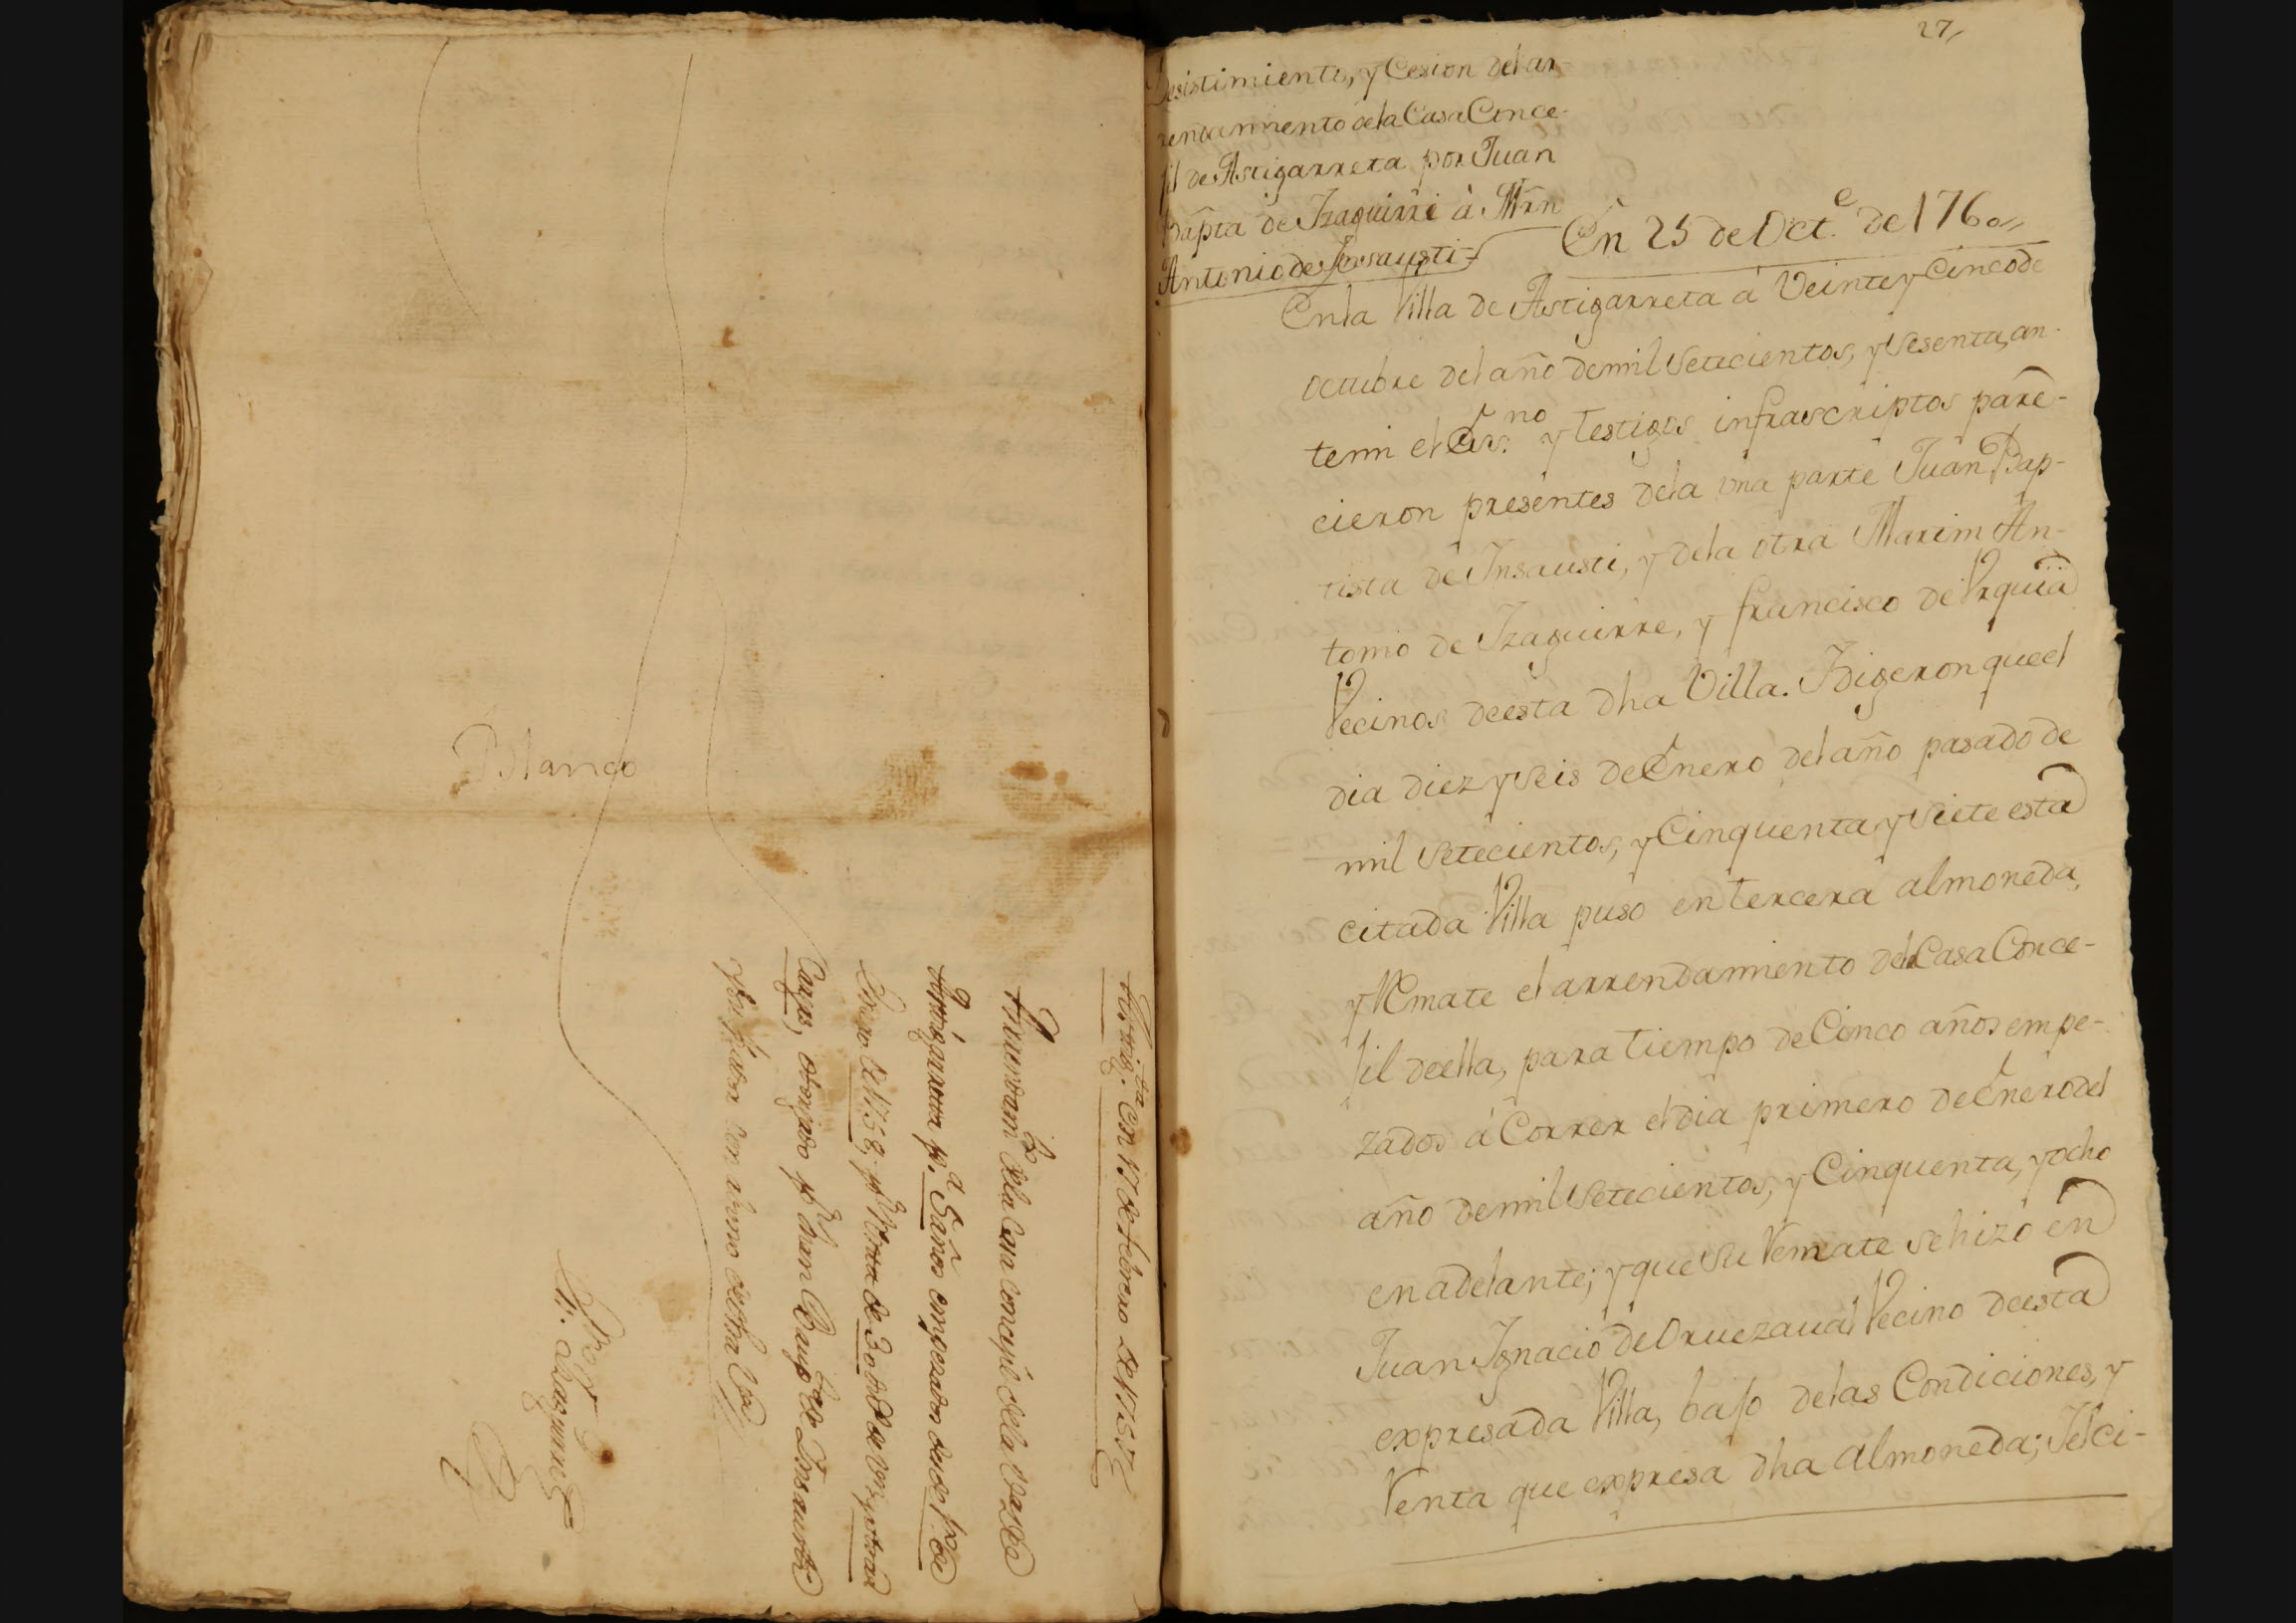 Blanco
Astig.ta En 17 de febrero de 1757
Arrendam.to de la Casa concejil de la Villa de
Astigarreta p.a 5 años empezados desde pro de
Enero de 1758, p.r Renta de 30 ds de von y otras
Cargas, otorgado p.r Juan Baup.ta de Insausti
y su fiador con abono de otra
Izaguirre
27,
Desistimiento, y Cesion del ar
rendamiento de la Casa Conce-
jil de Astigarreta por Juan
Bapta de Izaguirre à Mrn
Antonio de Insausti =
En 25 de Oct.e de 1760,,
En la Villa de Astigarreta á Veinte y Cinco de
octubre del año de mil Setecientos, y Sesenta, an-
te mi el Es.no y testigos infrascriptos pare-
cieron presentes de la una parte Juan Bap-
tista de Insausti, y de la otra Martin An-
tonio de Izaguirre, y francisco de Vrquia
Vecinos de esta dha Villa. I digeron que el
dia diez y Seis de Enero del año pasado de
mil Setecientos, y Cinquenta y Siete esta
citada Villa puso en tercera almoneda,
y Remate el arrendamiento de la Casa Conce-
jil de ella, para tiempo de Cinco años empe-
zados á Correr el dia primero de Enero del
año de mil Setecientos, y Cinquenta, y ocho
en adelante; y que su Remate se hizo en
Juan Ignacio de Oruezaual Vecino de esta
expresada Villa, bajo de las Condiciones, y
Renta que expresa dha Almoneda; I el ci-